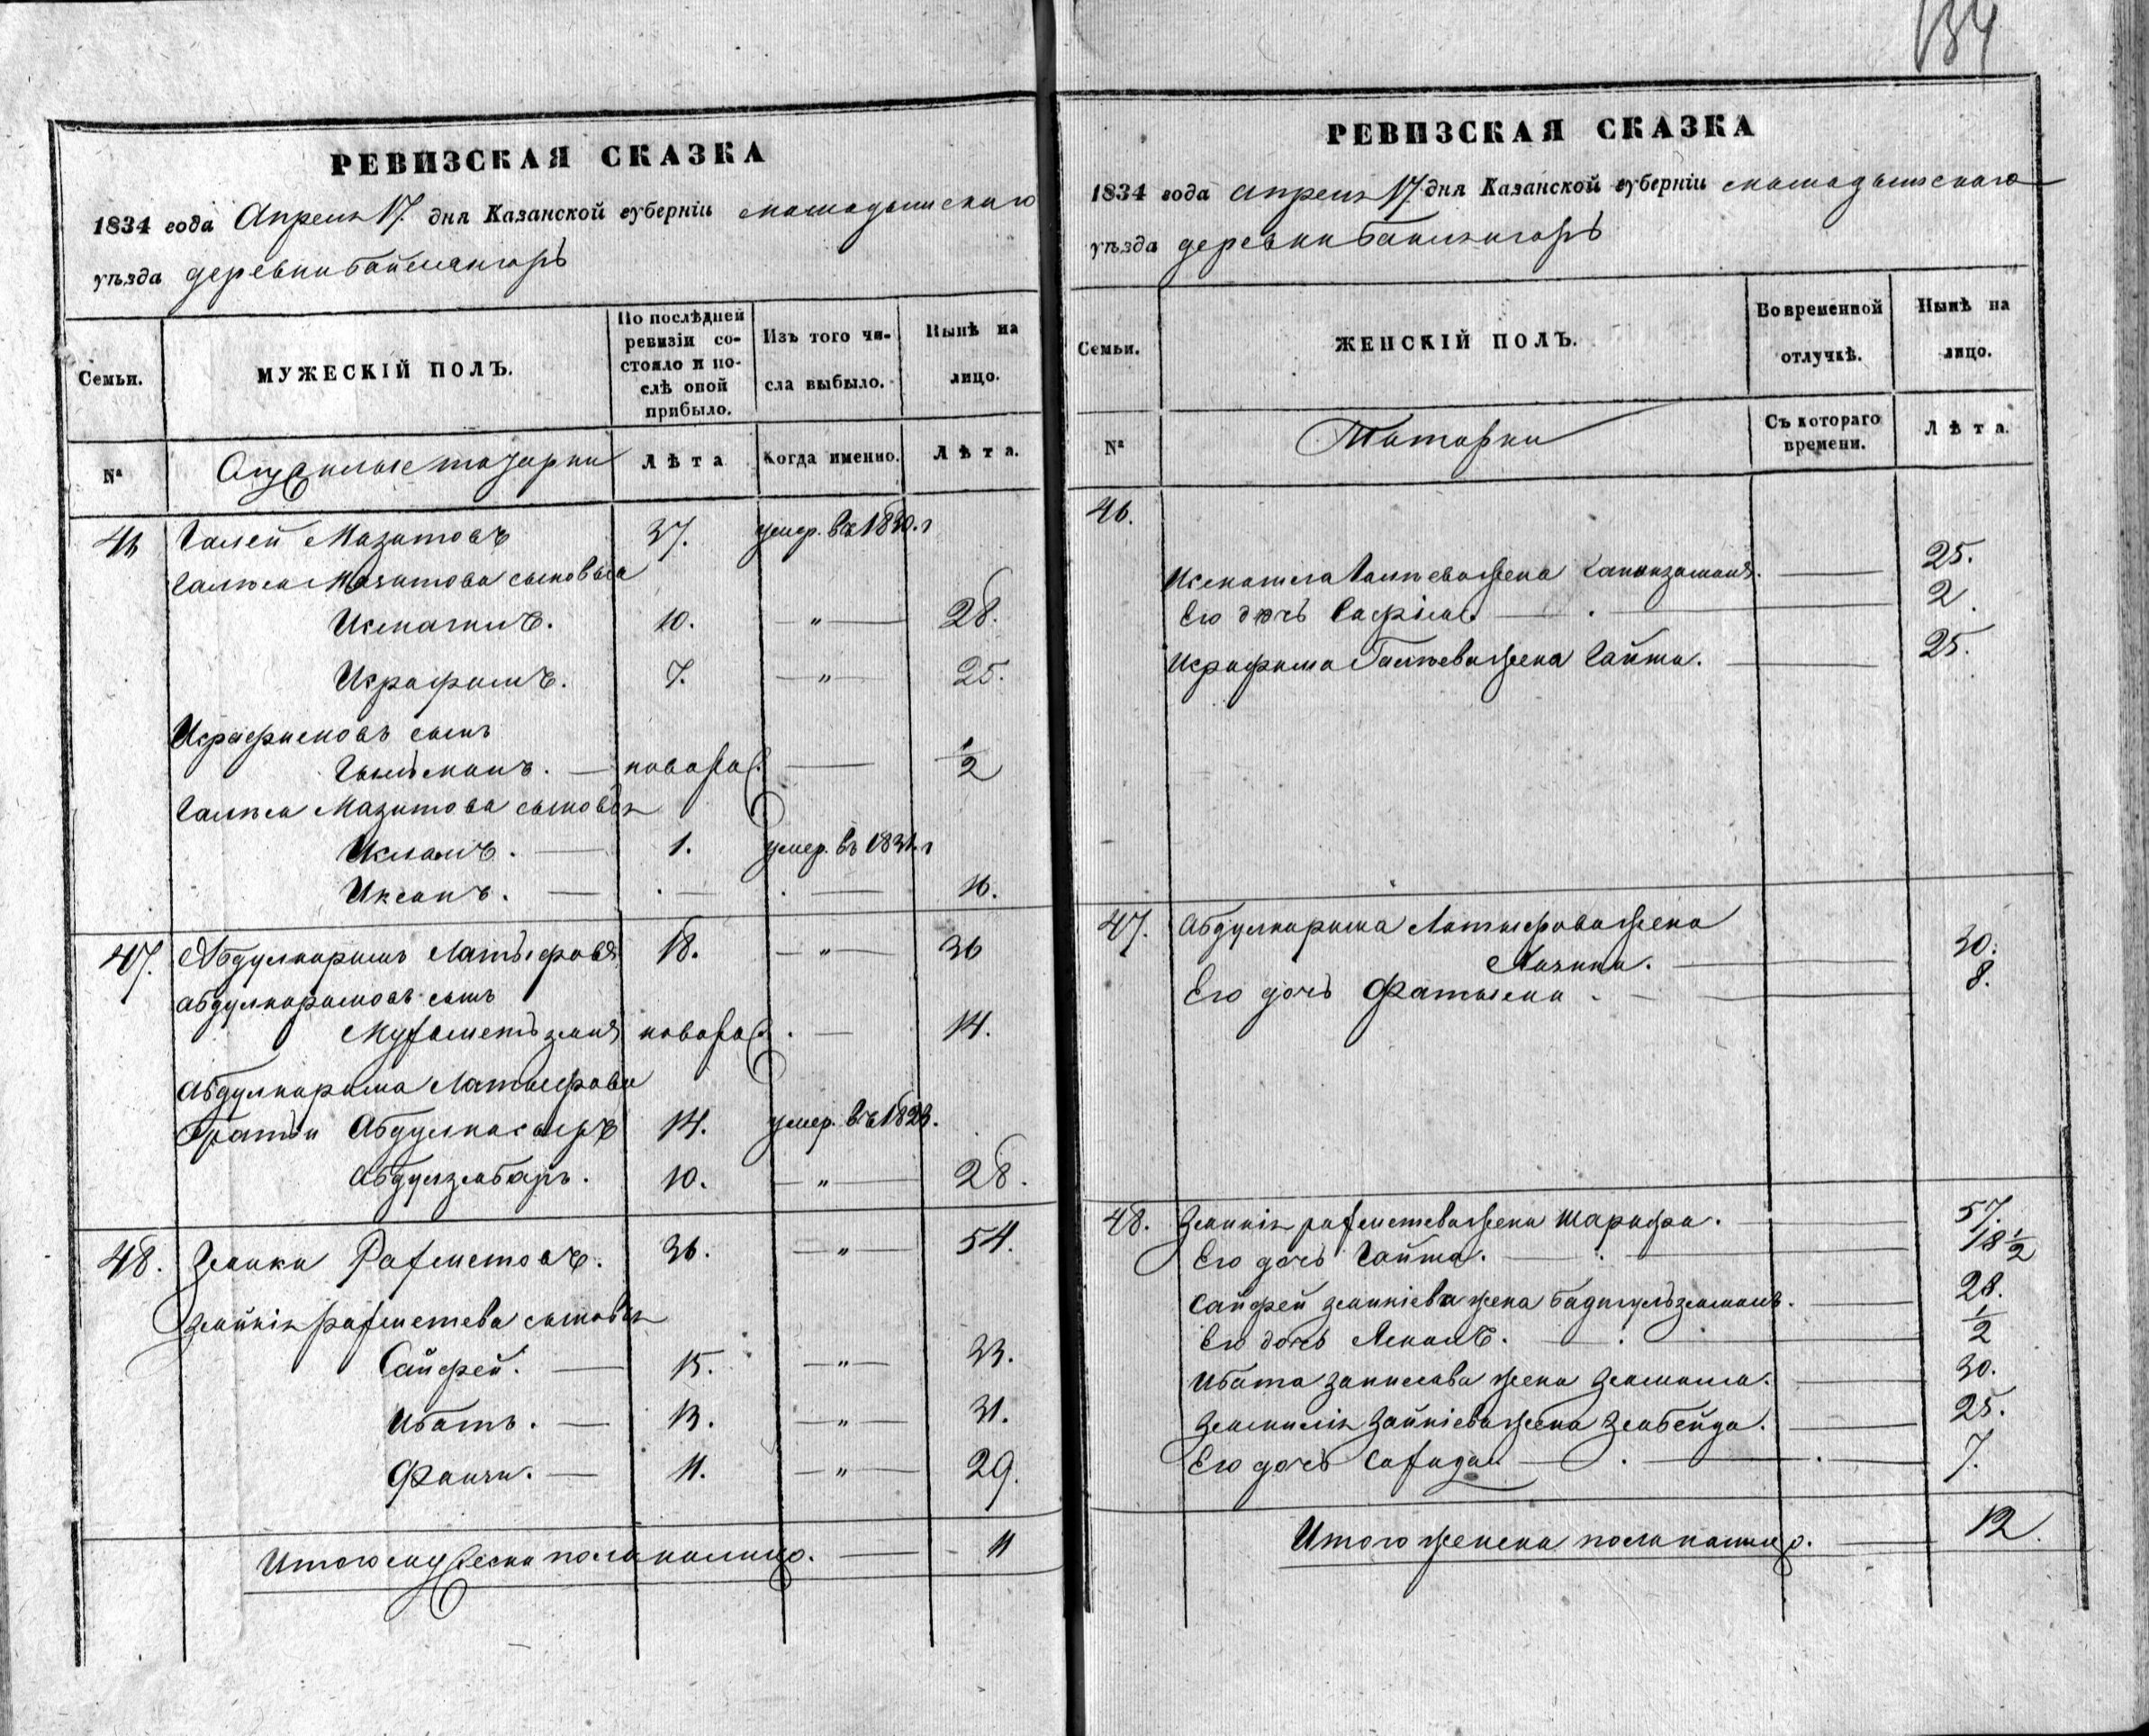 134
РЕВИЗСКАЯ СКАЗКА
1834 года Апреля 17. дня Казанской губерніи мамадышскаго
уѣзда деревни
Семьи.
МУЖЕСКІЙ ПОЛЪ.
По послѣдней ревизіи состояло и послѣ оной прибыло.
Изъ того числа выбыло.
Нынѣ на лицо.
№
татары
Лѣта
Когда именно.
Лѣта.
46 Галей Мазитовъ 37. умер. въ 1830. г
Галѣя Мазитова сыновья
Исмагилъ. 10. — " — 28.
Исрафилъ. 7. — " — 25.
Исрафиловъ сынъ
— новорож. — 1/2
Галѣя Мазитова сыновья
Исламъ. — 1. умер. въ 1831. г
Иксанъ. — . — . — 16.
47. Абдулкаримъ Латыфовъ 18. — " — 36
Абдулкаримовъ сынъ
новорож. . — 14.
Абдулкарима Латыфова
братья 14. умер. въ
10. — " — 28.
48. Зямки Рахметовъ. 36. — " — 54.
рахметева сыновья
Сайфей. — 15. — " — 33.
Ибатъ. — 13. — " — 31.
11. — " — 29.
Итого мужеска пола налицо. — 11
РЕВИЗСКАЯ СКАЗКА
1834 года апреля 17 дня Казанской губерніи мамадышскаго
уѣзда деревни
Семьи.
ЖЕНСКІЙ ПОЛЪ.
Во временной отлучкѣ.
Нынѣ на лицо.
№
Татарки
Съ котораго времени.
Лѣта.
46.
Исмагила Галѣева жена — 25.
Его дочь — . — 2.
Исрафила Галѣева жена Гайша. — 25.
47. Абдулкарима Латыфова жена
— 30.
Его дочь . — 8.
48. рахметева жена Шарифа. — 57.
Его дочь Гайша. — : — 18 1/2
Сайфей жена — 28.
Его дочь . — 1/2
Ибата жена — 30.
жена Зябейда. — 25.
Его дочь — . — 7.
Итого женска пола налицо. — 12.